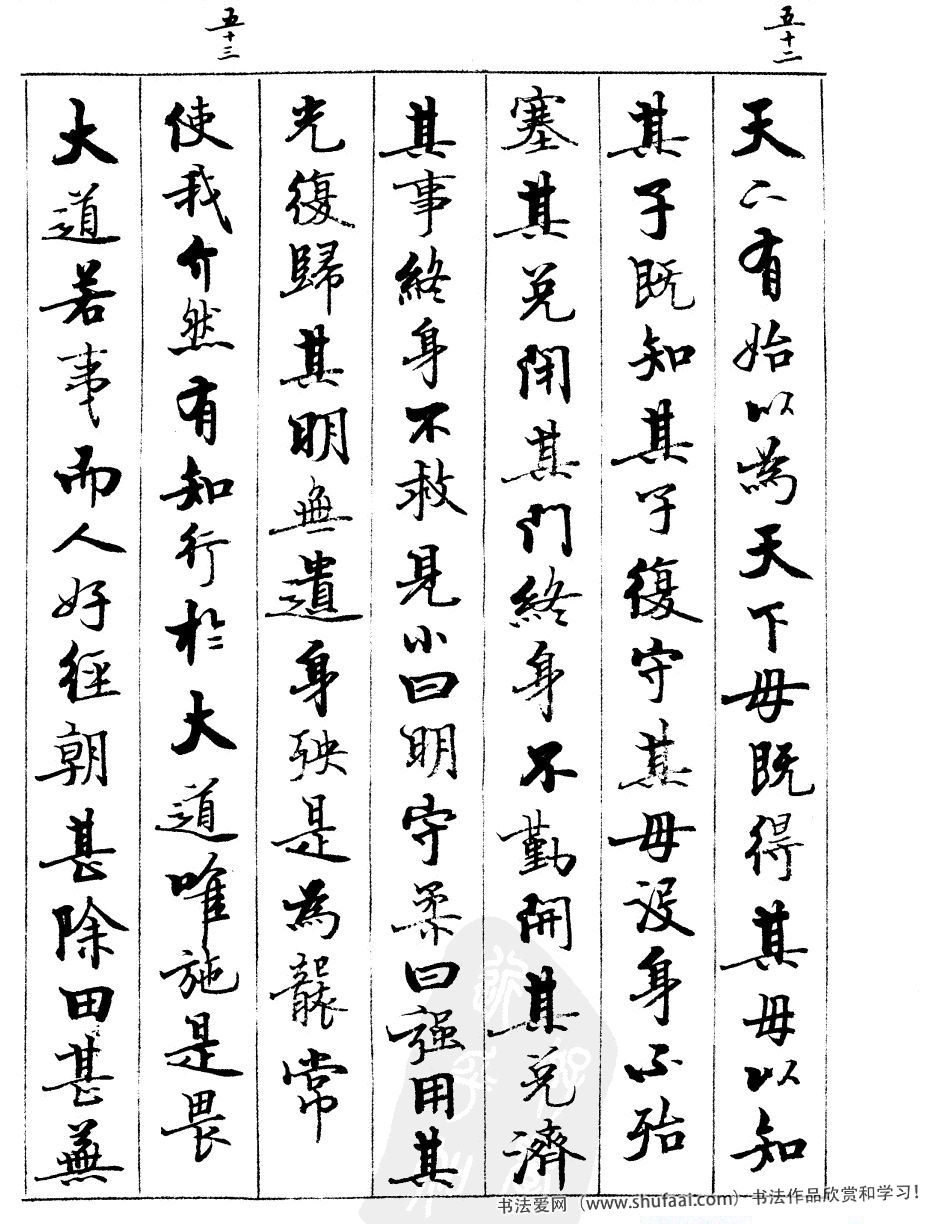 五十二
天下有始以為天下母既得其母以知
其子既知其子復守其母沒身不殆
塞其兌閉其門終身不勤開其兌濟
其事終身不救見小曰明守柔曰強用其
光復歸其明無遺身殃是為襲常
五十三
使我介然有知行於大道唯施是畏
大道若夷而人好徑朝甚除田甚蕪
书法爱网（www.shufaai.com）-书法作品欣赏和学习！